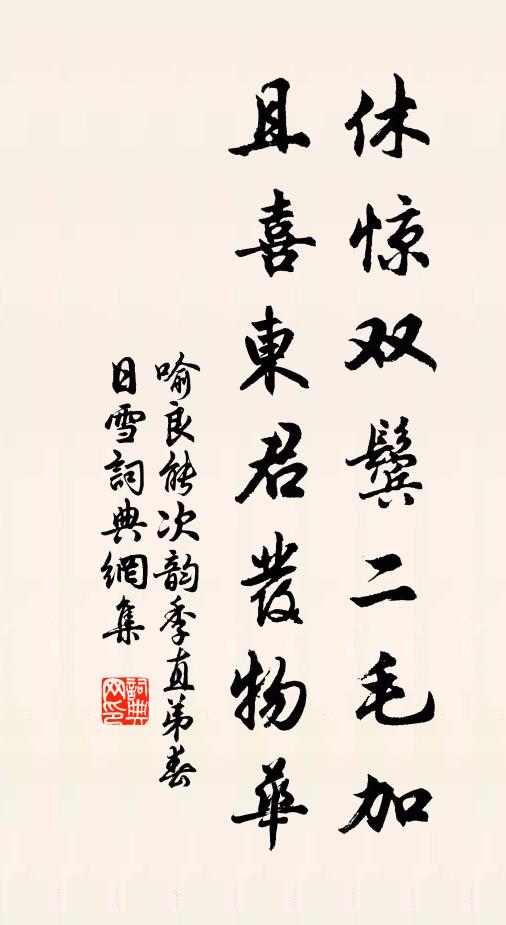 休惊双鬓二毛加
且喜東君發物華
喻良能次韵季直弟春
日雪詞典網集
詞典网印